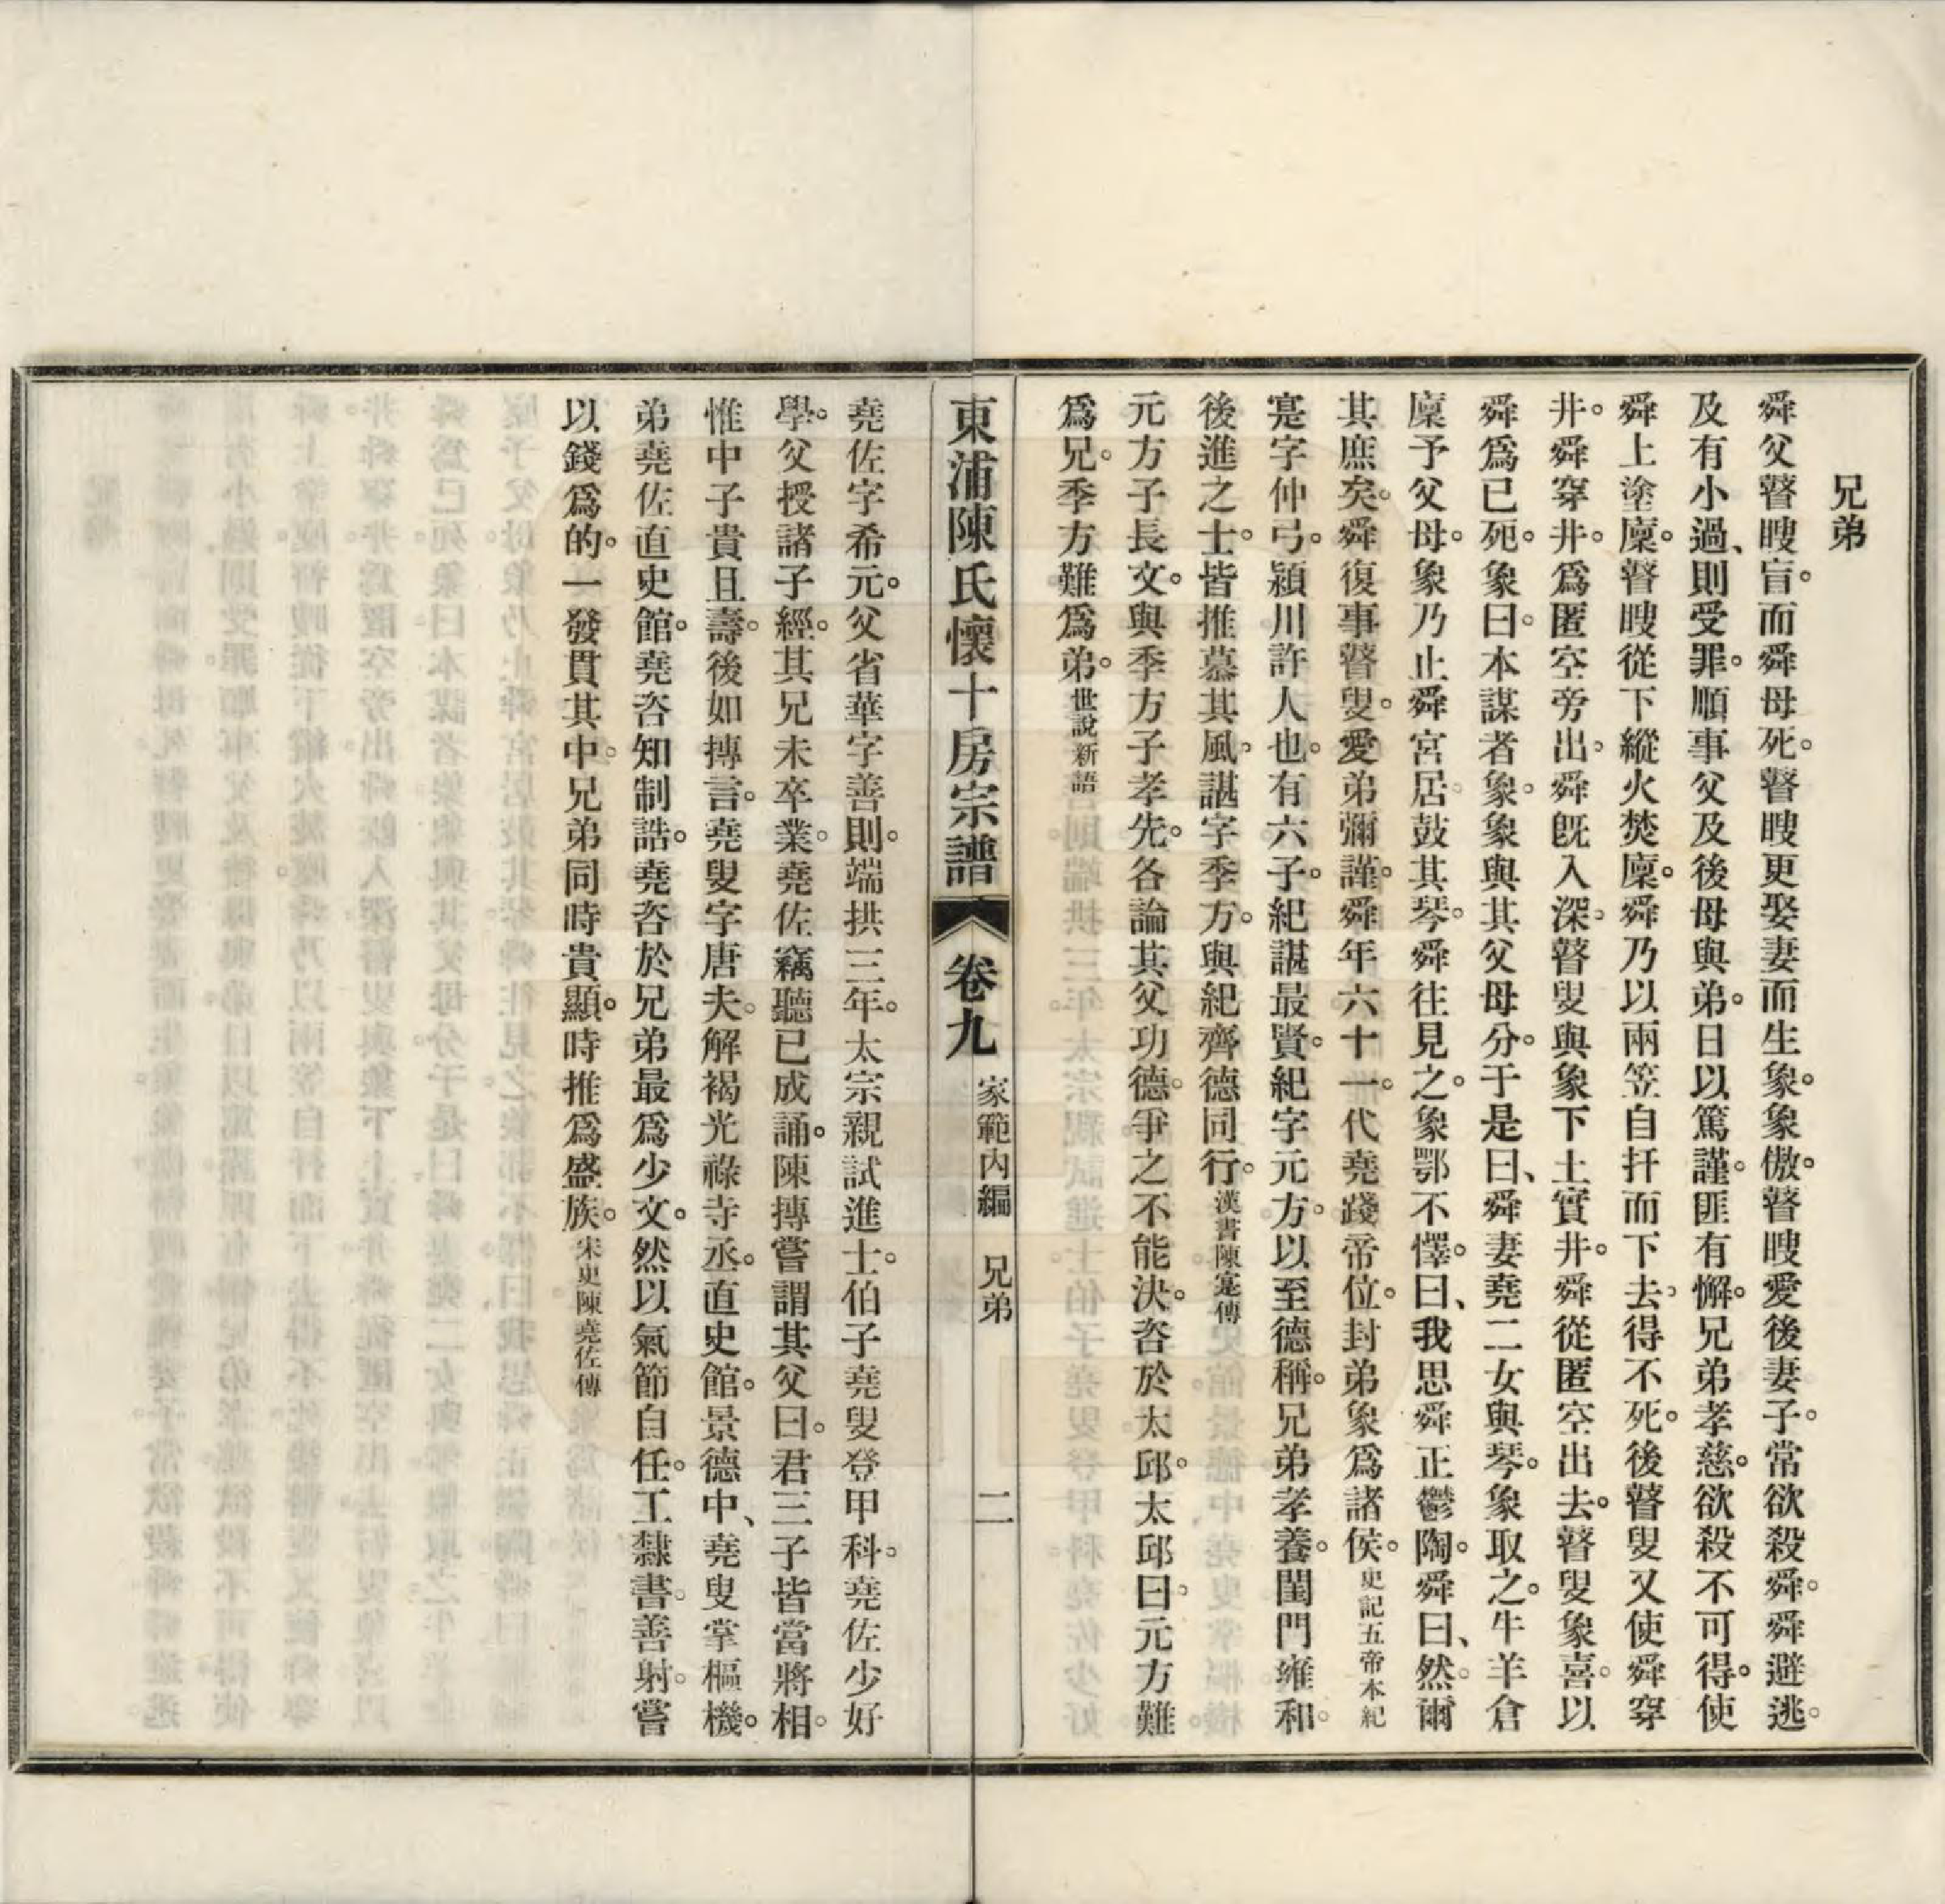 兄弟
舜父瞽瞍盲。而舜母死。瞽瞍更娶妻而生象。象傲。瞽瞍愛後妻子。常欲殺舜。舜避逃。
及有小過、則受罪。順事父及後母與弟。日以篤謹。匪有懈。兄弟孝慈。欲殺不可得。使
舜上塗廩。瞽瞍從下縱火焚廩。舜乃以兩笠自扞而下去。得不死。後瞽叟又使舜穿
井。舜穿井。爲匿空旁出。舜旣入深。瞽叟與象下土實井。舜從匿空出去。瞽叟象喜。以
舜爲已死。象曰。本謀者象。象與其父母分。于是曰、舜妻堯二女與琴。象取之。牛羊倉
廩予父母。象乃止舜宮居。鼓其琴。舜往見之。象鄂不懌。曰、我思舜正鬱陶。舜曰、然。爾
其庶矣。舜復事瞽叟。愛弟彌謹。舜年六十一。代堯踐帝位。封弟象爲諸侯。史記五帝本紀
寔字仲弓。潁川許人也。有六子。紀諶最賢。紀字元方。以至德稱。兄弟孝養。閨門雍和。
後進之士。皆推慕其風。諶字季方。與紀齊德同行。漢書陳寔傳
元方子長文。與季方子孝先。各論其父功德。爭之不能決。咨於太邱。太邱曰。元方難
爲兄。季方難爲弟。世說新語
東浦陳氏懷十房宗譜 卷九 家範內編 兄弟 二
堯佐字希元。父省華字善則。端拱三年。太宗親試進士。伯子堯叟登甲科。堯佐少好
學。父授諸子經。其兄未卒業。堯佐竊聽已成誦。陳摶嘗謂其父曰。君三子皆當將相。
惟中子貴且壽。後如摶言。堯叟字唐夫。解褐光祿寺丞。直史館。景德中、堯叟掌樞機。
弟堯佐直史館。堯咨知制誥。堯咨於兄弟最爲少文。然以氣節自任。工隸書。善射。嘗
以錢爲的。一發貫其中。兄弟同時貴顯。時推爲盛族。宋史陳堯佐傳